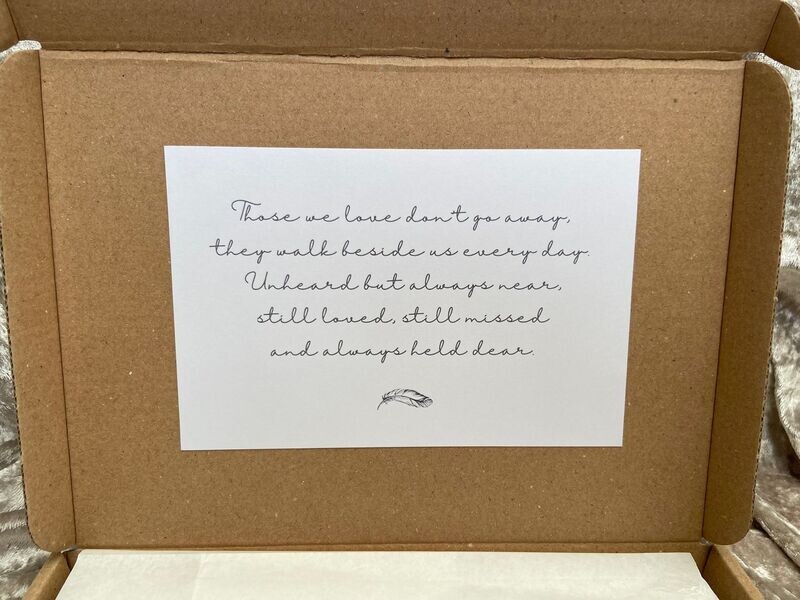 Those we love don't go away,
they walk beside us every day.
Unheard but always near,
still loved, still missed
and always held dear.